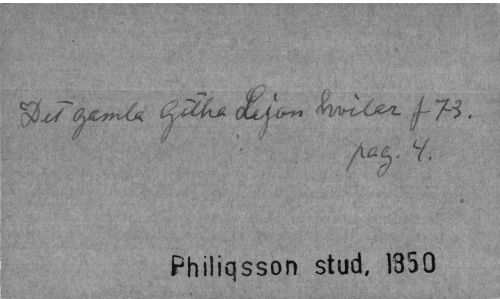 Det gamla Götha Lejon hvilar f 73.
pag. 4.
Philiqsson stud, 1850